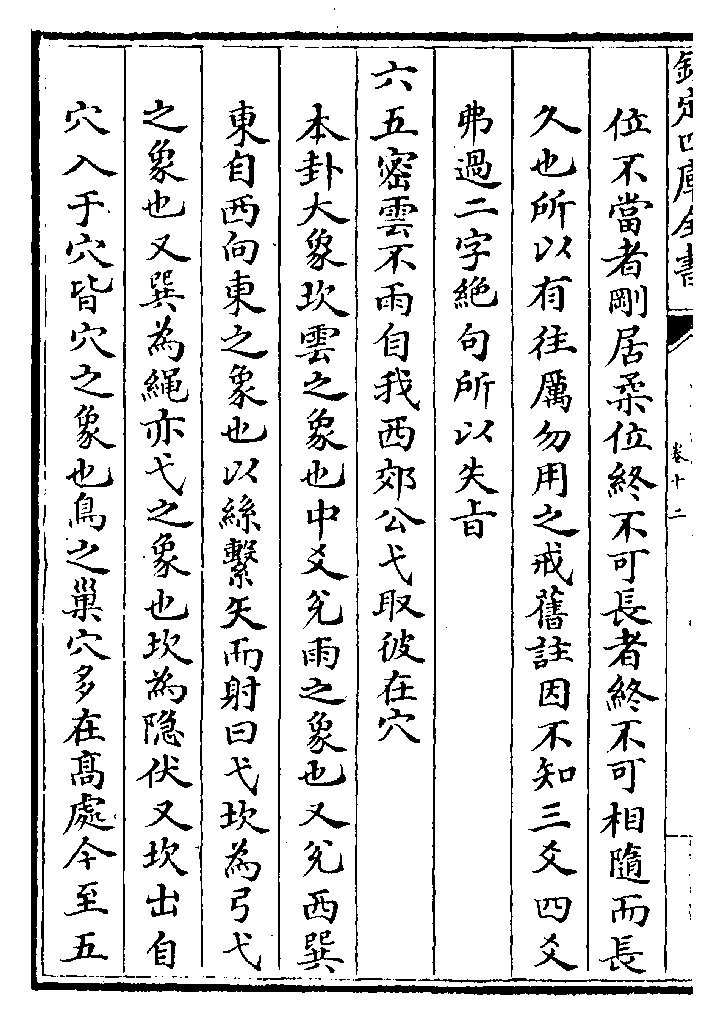 欽定四庫全書
卷十二
位不當者剛居柔位終不可長者終不可相隨而長
久也所以有往厲勿用之戒舊註因不知三爻四爻
弗過二字絶句所以失旨
六五密雲不雨自我西郊公弋取彼在穴
本卦大象坎雲之象也中爻兊雨之象也又兊西巽
東自西向東之象也以絲繫矢而射曰弋坎為弓弋
之象也又巽為繩亦弋之象也坎為隐伏又坎出自
穴入于穴皆穴之象也鳥之巢穴多在髙處今至五